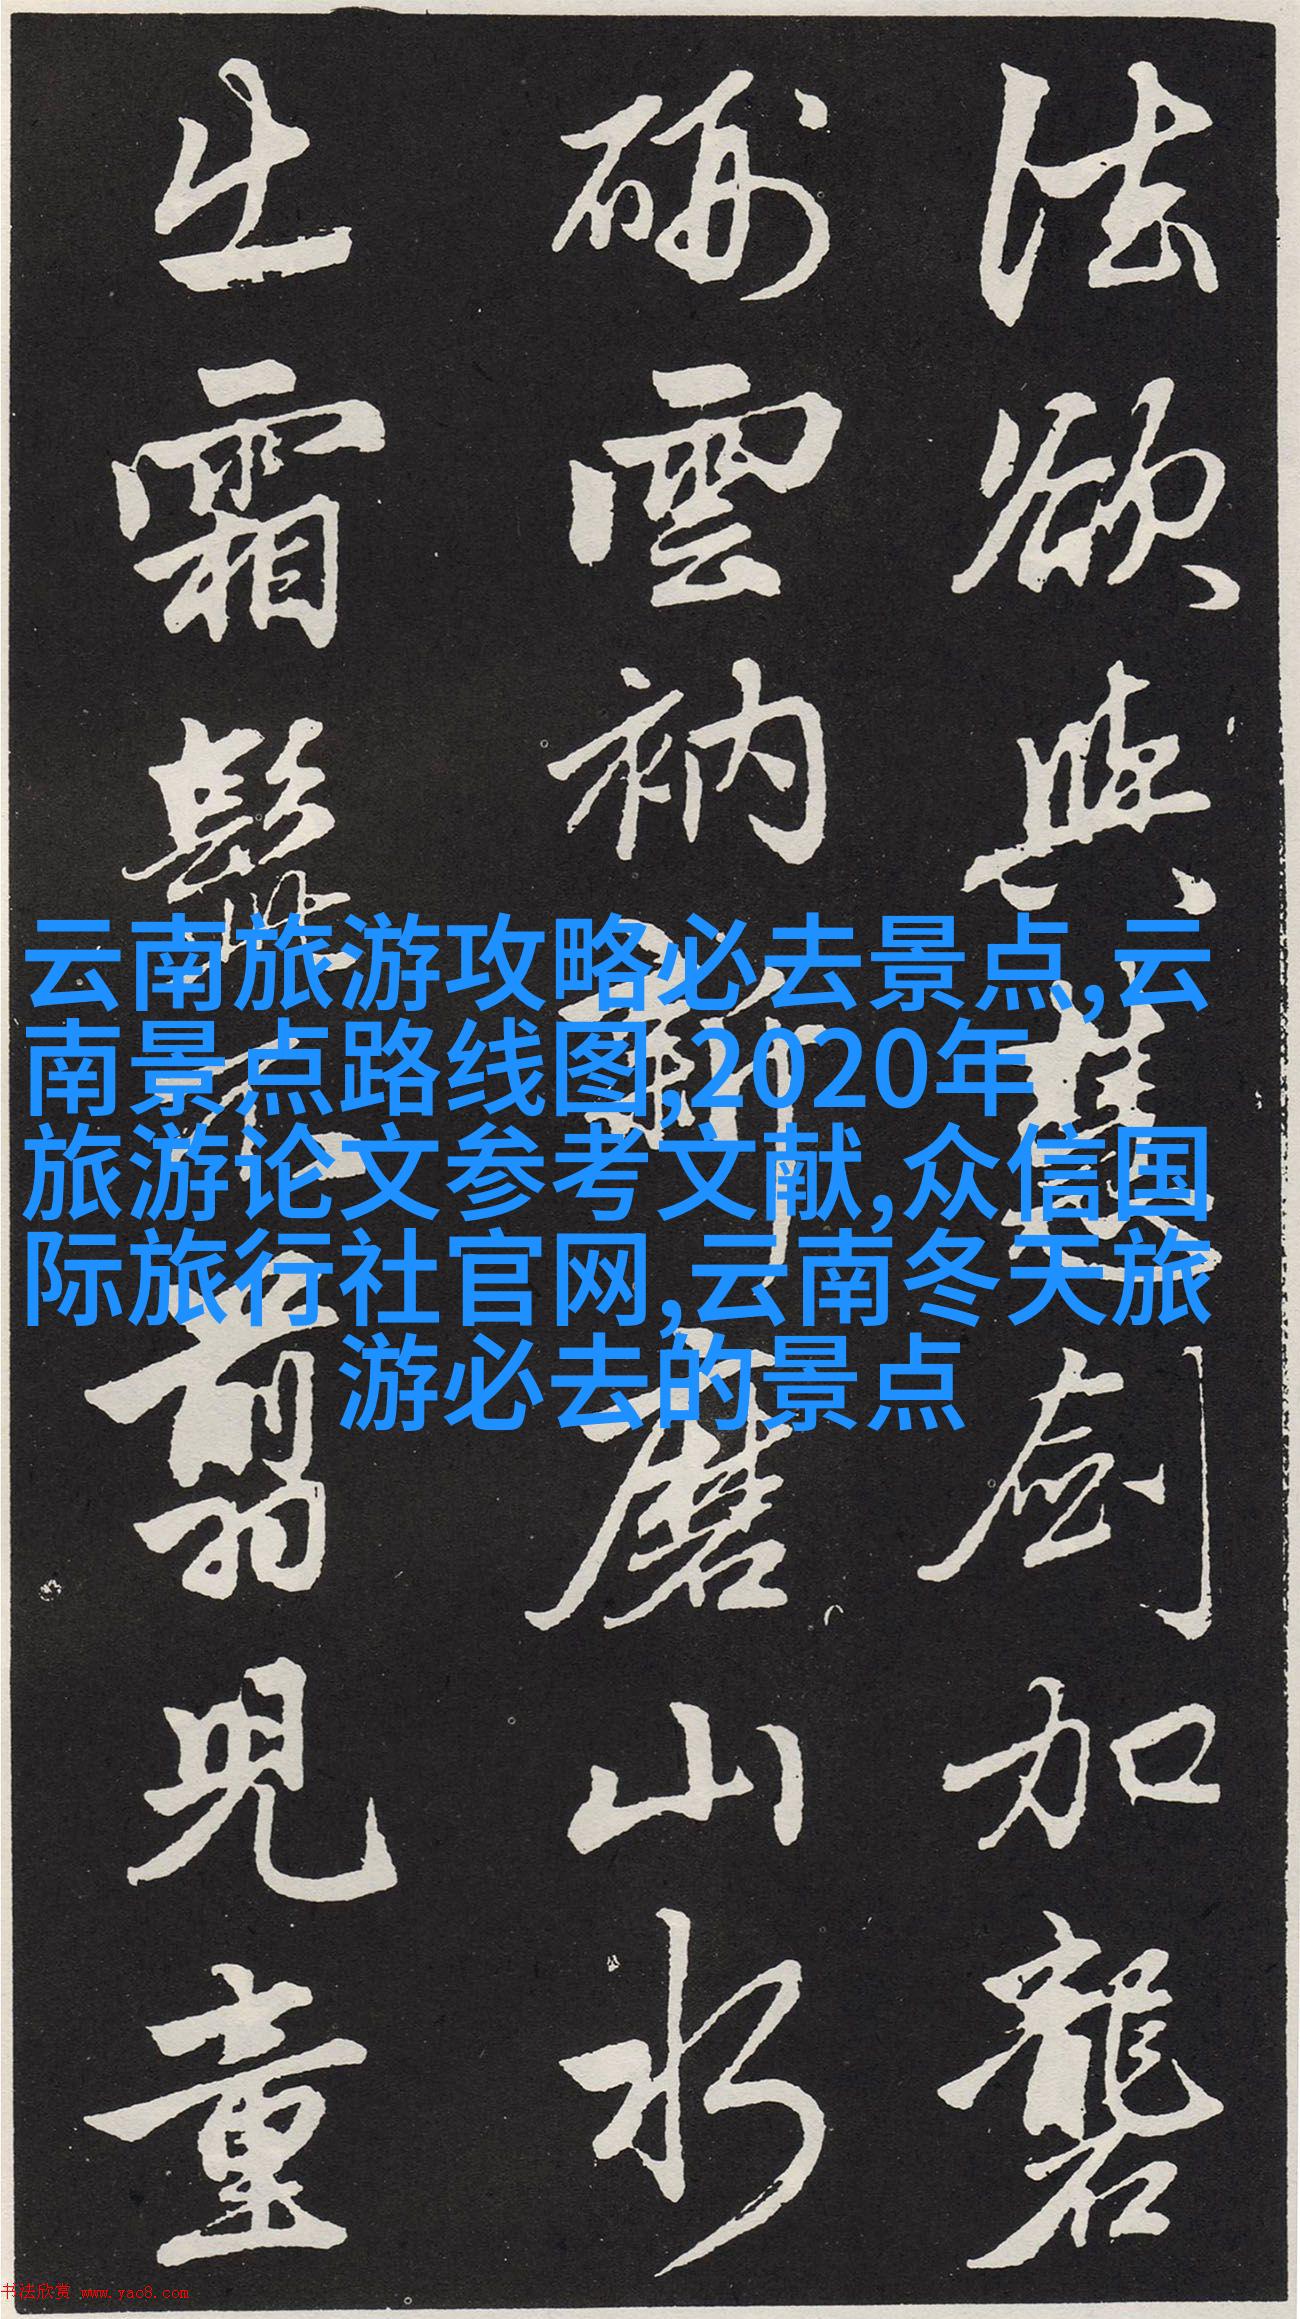 法欲與慧劍加礱
硎雲衲新磨山水
出霜髭不翦兒童
云南旅游攻略必去景点,云
南景点路线图,2020年
旅游论文参考文献,众信国
际旅行社官网,云南冬天旅
游必去的景点
书法欣赏 www.yac8.com